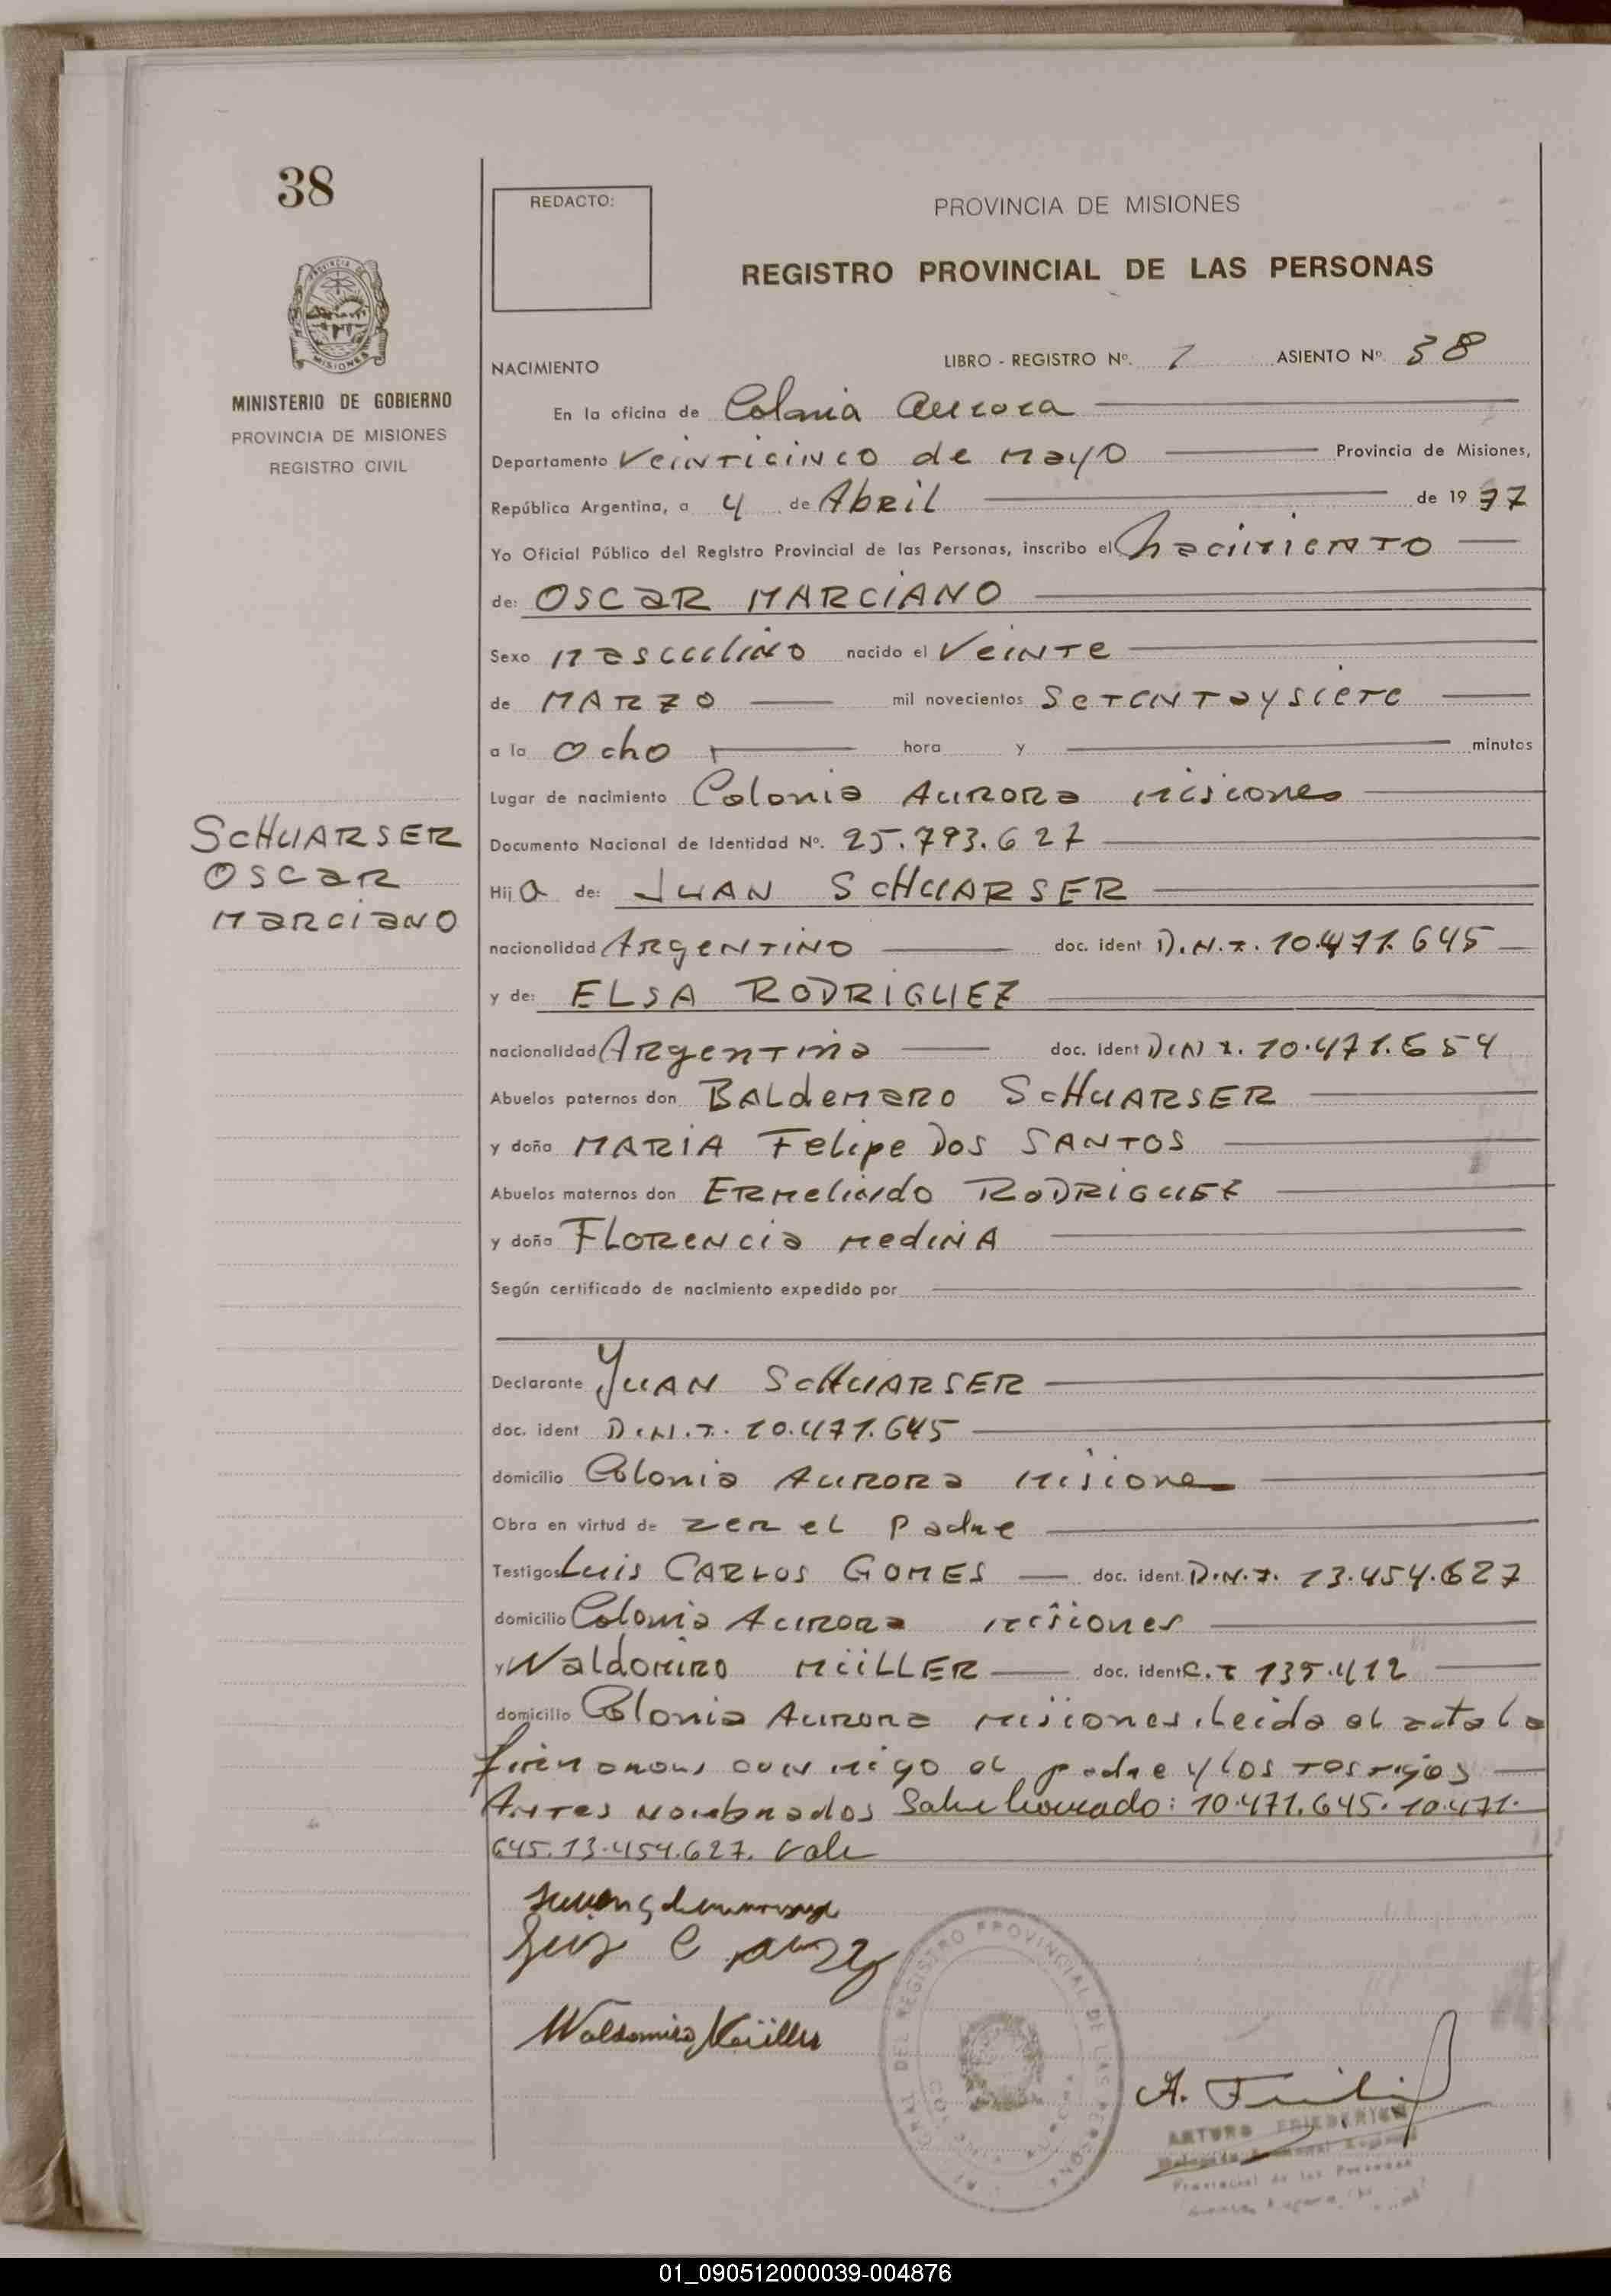 38
REDACTO:
PROVINCIA DE MISIONES
REGISTRO PROVINCIAL DE LAS PERSONAS
MINISTERIO DE GOBIERNO
PROVINCIA DE MISIONES
REGISTRO CIVIL
NACIMIENTO LIBRO - REGISTRO Nº. 1 ASIENTO Nº 38
En la oficina de Colonia Aurora
Departamento Veinticinco de Mayo Provincia de Misiones,
República Argentina, a 4 de Abril de 1977
Yo Oficial Público del Registro Provincial de las Personas, inscribo el Nacimiento
de: OSCAR MARCIANO
Sexo Masculino nacido el Veinte
de MARZO mil novecientos Setentaysiete
a la Ocho hora y minutos
Lugar de nacimiento Colonia Aurora Misiones
SCHUARSER
OSCAR
MARCIANO
Documento Nacional de Identidad Nº. 25.793.627
Hijo de: JUAN SCHUARSER
nacionalidad Argentino doc. ident D.N.I. 10.471.645
y de: ELSA RODRIGUEZ
nacionalidad Argentina doc. ident D.N.I. 10.471.654
Abuelos paternos don BALdeMaRO SCHUARSER
y doña MARIA Felipe Dos SANTOS
Abuelos maternos don ERMelindo RODRIGUEZ
y doña FLORENcia MediNA
Según certificado de nacimiento expedido por
Declarante JUAN SCHUARSER
doc. ident D.N.I. 10.471.645
domicilio Colonia Aurora Misiones
Obra en virtud de zer el Padre
Testigos Luis CARLOS GOMES doc. ident. D.N.I. 13.454.627
domicilio Colonia Aurora Misiones
y Waldomiro MüLLER doc. ident C.I 135.412
domicilio Colonia Aurora Misiones. Leida el acta la
firman conmigo el padre y los testigos
Antes Nombrados Sobre borrado: 10.471.645. 10.471.
645. 13.454.627. Vale
Waldomiro Müller
DEL REGISTRO PROVINCIAL DE LAS PERSONAS
A.
ARTURO FRIEDERICH
Provincial de las Personas
01_090512000039-004876